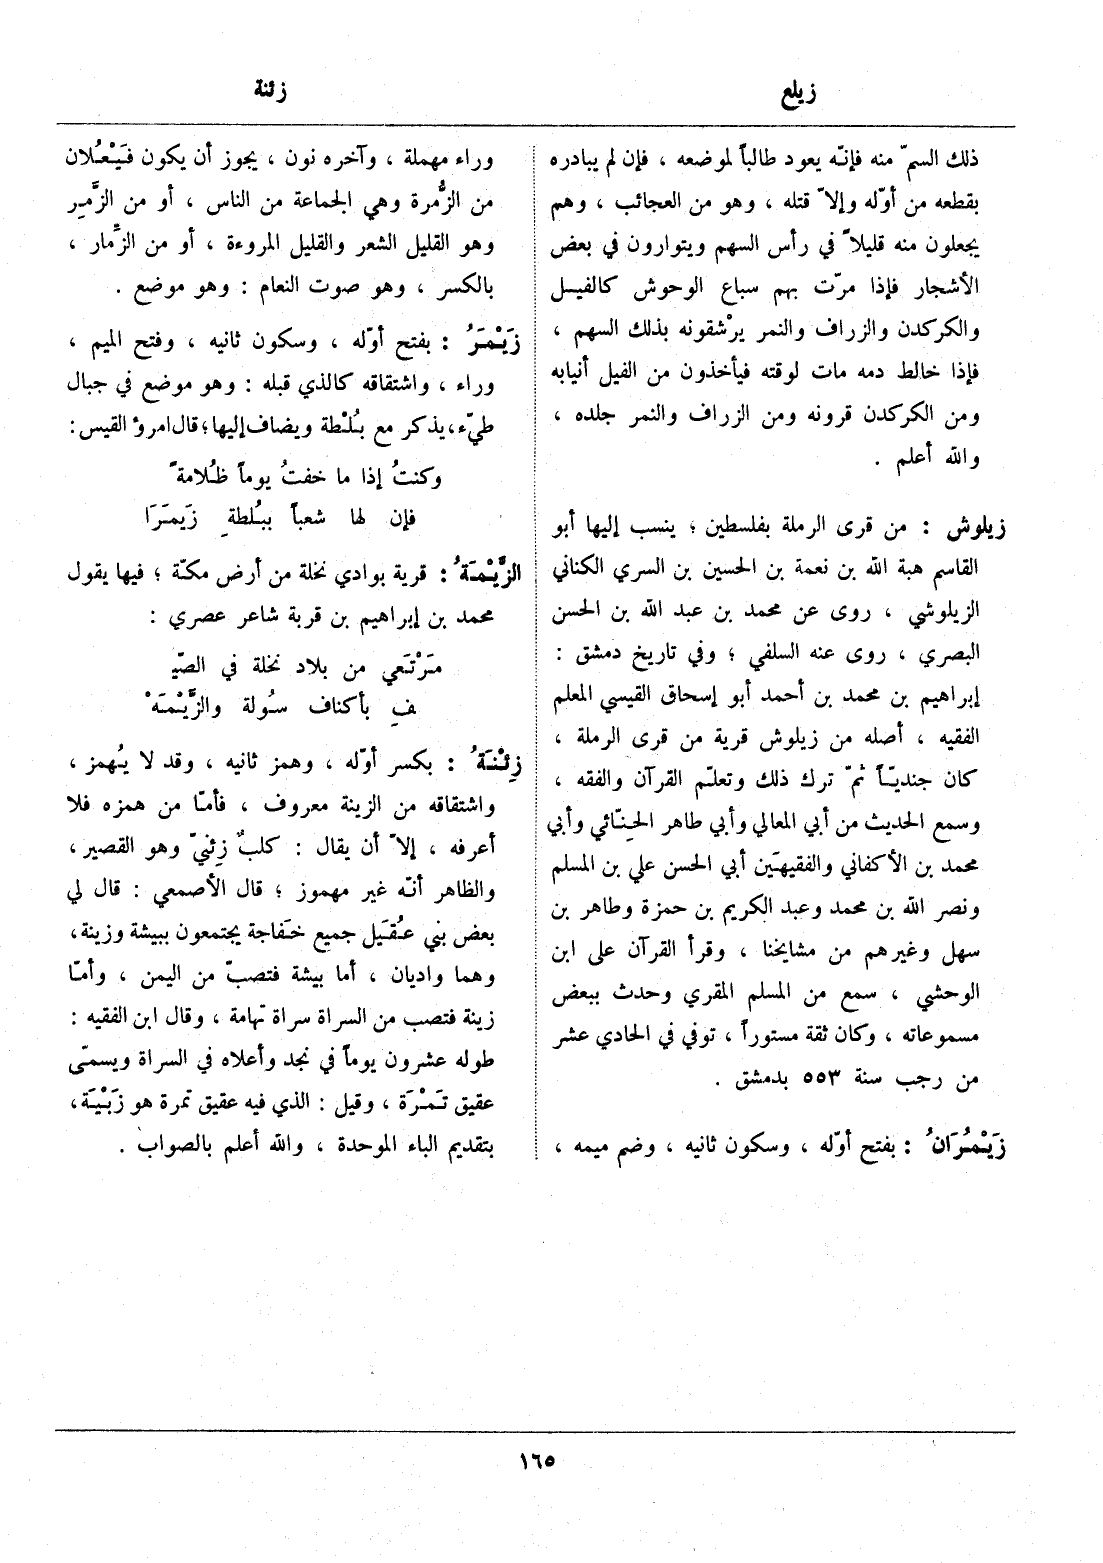 زيلع
زئنة
ذلك السمّ منه فإنّه يعود طالباً لموضعه ، فإن لم يبادره
بقطعه من أوّله وإلاّ قتله ، وهو من العجائب ، وهم
يجعلون منه قليلاً في رأس السهم ويتوارون في بعض
الأشجار فإذا مرّت بهم سباع الوحوش كالفيل
والكركدن والزراف والنمر يرْشقونه بذلك السهم ،
فإذا خالط دمه مات لوقته فيأخذون من الفيل أنيابه
ومن الكركدن قرونه ومن الزراف والنمر جلده ،
والله أعلم .
زيلوش : من قرى الرملة بفلسطين ؛ ينسب إليها أبو
القاسم هبة الله بن نعمة بن الحسين بن السري الكناني
الزيلوشي ، روى عن محمد بن عبد الله بن الحسن
البصري ، روى عنه السلفي ؛ وفي تاريخ دمشق :
إبراهيم بن محمد بن أحمد أبو إسحاق القيسي المعلم
الفقيه ، أصله من زيلوش قرية من قرى الرملة ،
كان جنديّاً ثمّ ترك ذلك وتعلّم القرآن والفقه ،
وسمع الحديث من أبي المعالي وأبي طاهر الحِنّائي وأبي
محمد بن الأكفاني والفقيهَين أبي الحسن علي بن المسلم
ونصر الله بن محمد وعبد الكريم بن حمزة وطاهر بن
سهل وغيرهم من مشايخنا ، وقرأ القرآن على ابن
الوحشي ، سمع من المسلم المقري وحدث ببعض
مسموعاته ، وكان ثقة مستوراً ، توفي في الحادي عشر
من رجب سنة ٥٥٣ بدمشق .
زَيْمُرَانُ : بفتح أوّله ، وسكون ثانيه ، وضم ميمه ،
وراء مهملة ، وآخره نون ، يجوز أن يكون فَيْعُلان
من الزُّمرة وهي الجماعة من الناس ، أو من الزَّمِر
وهو القليل الشعر والقليل المروءة ، أو من الزِّمار ،
بالكسر ، وهو صوت النعام : وهو موضع .
زَيْمَرُ : بفتح أوّله ، وسكون ثانيه ، وفتح الميم ،
وراء ، واشتقاقه كالذي قبله : وهو موضع في جبال
طيّء،يذكر مع بُلْطة ويضاف إليها؛قال امرؤ القيس:
وكنتُ إذا ما خفتُ يوماً ظُلامةً
فإن لها شعباً ببُلطةِ زَيمَرَا
الزَّيْمَةُ : قرية بوادي نخلة من أرض مكّة ؛ فيها يقول
محمد بن إبراهيم بن قربة شاعر عصري :
مَرْتَعي من بلاد نخلة في الصّيـ
ـفِ بأكناف سُولة والزَّيْمَهْ
زِئْنَةُ : بكسر أوّله ، وهمز ثانيه ، وقد لا يُهمز ،
واشتقاقه من الزينة معروف ، فأمّا من همزه فلا
أعرفه ، إلاّ أن يقال : كلبٌ زِئنيّ وهو القصير ،
والظاهر أنّه غير مهموز ؛ قال الأصمعي : قال لي
بعض بني عُقَيل جميع خَفاجة يجتمعون ببيشة وزينة،
وهما واديان ، أما بيشة فتصبّ من اليمن ، وأمّا
زينة فتصب من السراة سراة تهامة ، وقال ابن الفقيه :
طوله عشرون يوماً في نجد وأعلاه في السراة ويسمّى
عقيق تَمْرَة ، وقيل : الذي فيه عقيق تمرة هو زَبْيَة،
بتقديم الباء الموحدة ، والله أعلم بالصواب .
١٦٥